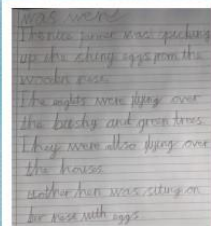 was were
The nice farmer was picking
up the shiny eggs from the
wooden nest.
The were flying over
the bushy and green trees.
They were also flying over
the houses.
mother hen was siting on
her nest with eggs.